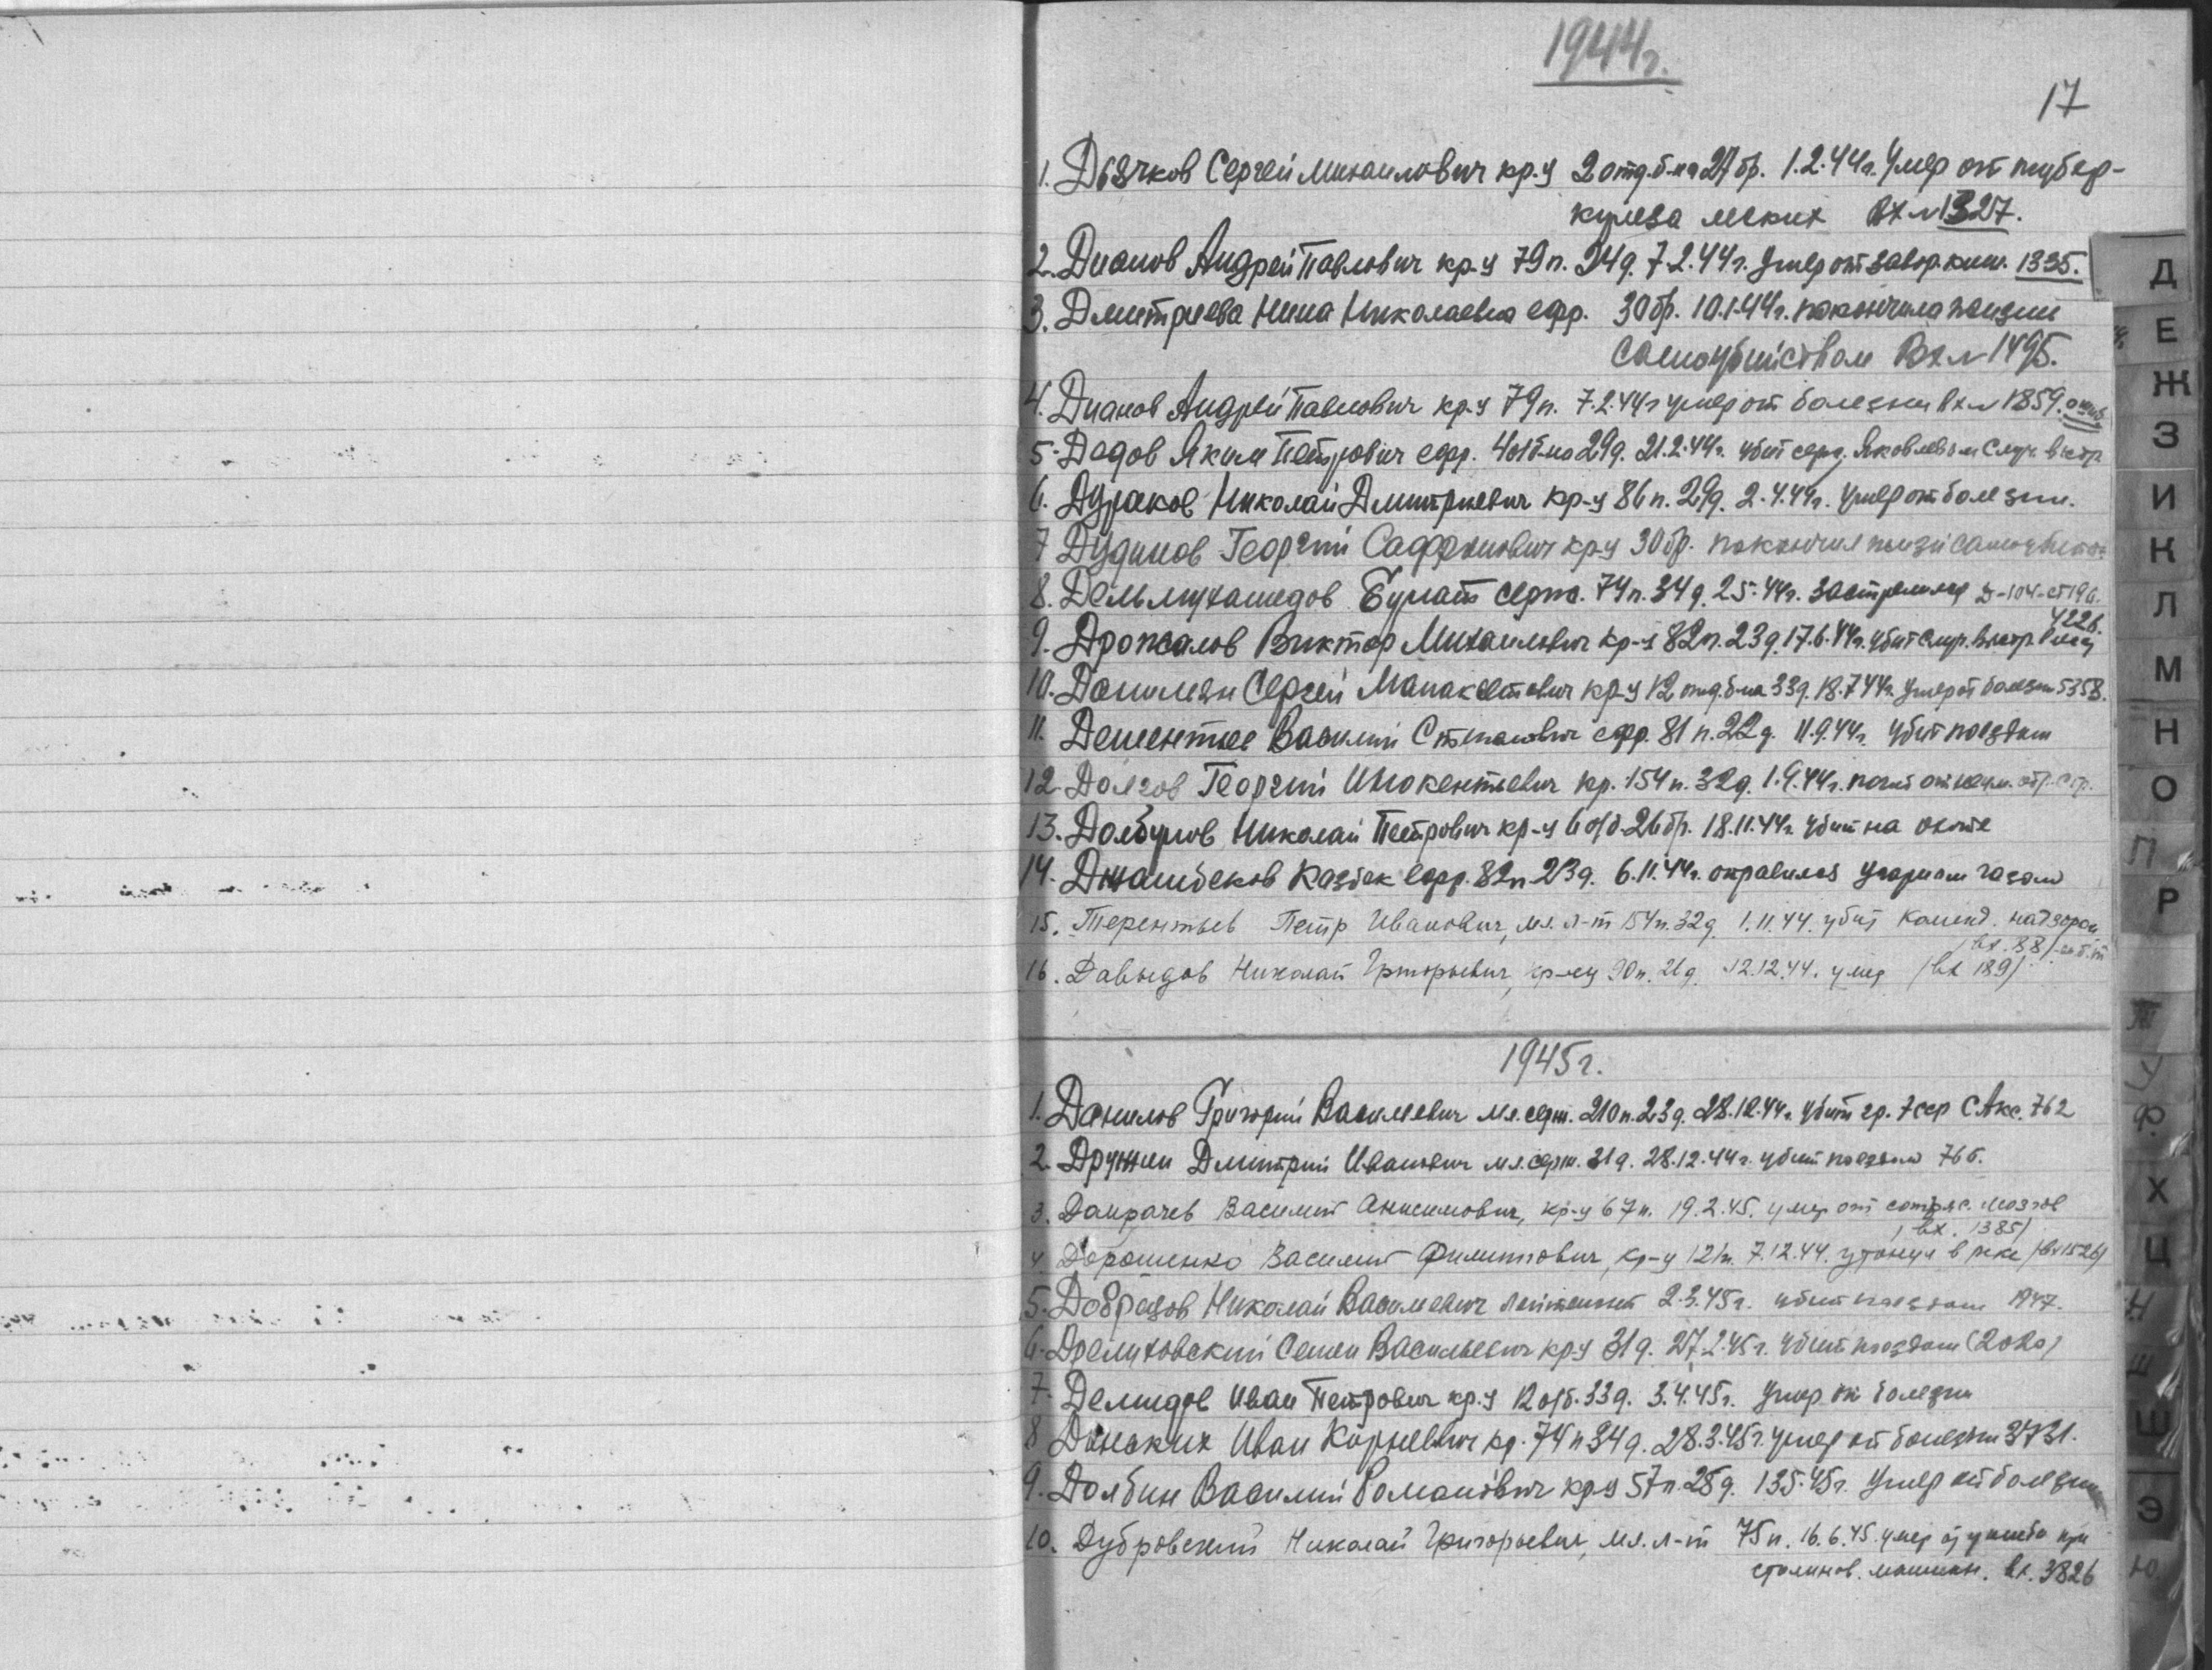 1944г.
17
1. Дьячков Сергей Михаилович кр-ц 2 отд. б-на 27 бр. 1.2.44г. Умер от тубер-
кулеза легких Вх № 1327.
2. Дианов Андрей Павлович кр-ц 79 п. 24д. 7.2.44г. Умер от завор. киш. 1335.
3. Дмитриева Нина Николаевна ефр. 30 бр. 10.1.44г. покончила жизнь
самоубийством Вх № 1495.
4. Дианов Андрей Павлович кр-ц 79 п. 7.2.44г умер от болезни Вх № 1859.
5. Дедов Яким Петрович ефр. 4 о/б-на 29д. 21.2.44г. убит серж. Яковлевым случ. выстр.
6. Дураков Николай Дмитриевич кр-ц 86 п. 29д. 2.4.44г. Умер от болезни.
7 Дудинов Георгий кр-ц 30 бр. покончил жизн
8. Дельмухамедов Булат серж. 74 п. 34д. 2.5.44г. застрелился
4226.
9. Дрожалов Виктор Михаилович кр-ц 82 п. 23д. 17.6.44г. убит случ. выстр.
10. Данилян Сергей кр-ц 12 отд. б-на 33д. 18.7.44г. Умер от болезни 5358.
11. Дементьев Василий Степанович ефр. 81 п. 22д. 11.9.44г. Убит поездом
12. Долгов Георгий Инокентьевич кр. 154 п. 32д. 1.9.44г.
13. Долбунов Николай Петрович кр-ц 6 о/б-26 бр. 18.11.44г. Убит на охоте
14. Джамбеков Казбек ефр. 82 п 23д. 6.11.44г. отравился угарным газом
15. Терентьев Петр Иванович, мл. л-т 154 п. 32д. 1.11.44. убит коменд. надзором
/вх. 88/
16. Давыдов Николай Григорьевич, кр-ец 90 п. 21д. 12.12.44. умер /вх 189/
1945г.
1. Данилов Григорий Васильевич мл. серж. 210 п. 23д. 28.12.44г. Убит 762
2. Дружин Дмитрий Иванович мл. серж. 31д. 28.12.44г. убит поездом 766.
3. Василий Анисимович, кр-ц 67 п. 19.2.45. умер от сотряс. мозгов
/вх. 1385/
4 Дорошенко Василий Филиппович, кр-ц 121п. 7.12.44. утонул в реке /вх 1526/
5. Добрецов Николай Васильевич лейтенант 2.3.45г. убит поездом 1947.
6. Дрелиховский Семен Васильевич кр-ц 31д. 27.2.45г. Убит поездом (2020)
7. Демидов Иван Петрович кр-ц 12 о/б. 33д. 3.4.45г. Умер от болезни
8 Донских Иван Корнеевич кр. 74 п 34д. 28.3.45г. умер от болезни 3731.
9. Долбин Василий Романович кр-ц 57 п. 28д. 13.5.45г. Умер от болезни
10. Дубровский Николай Григорьевич, мл. л-т 75 п. 16.6.45. умер от ушиба при
столкнов. машин. вх. 3826
Д
Е
Ж
З
И
К
Л
М
Н
О
П
Р
Т
У
Ф
Х
Ц
Ч
Ш
Э
Ю